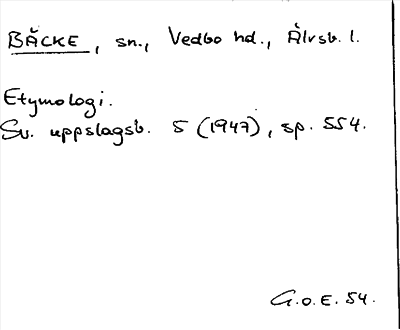 BÄCKE, sn., Vedbo hd., Älvsb. l.
Etymologi.
Sv. uppslagsb. 5 (1947), sp. 554.
G.O.E. 54.